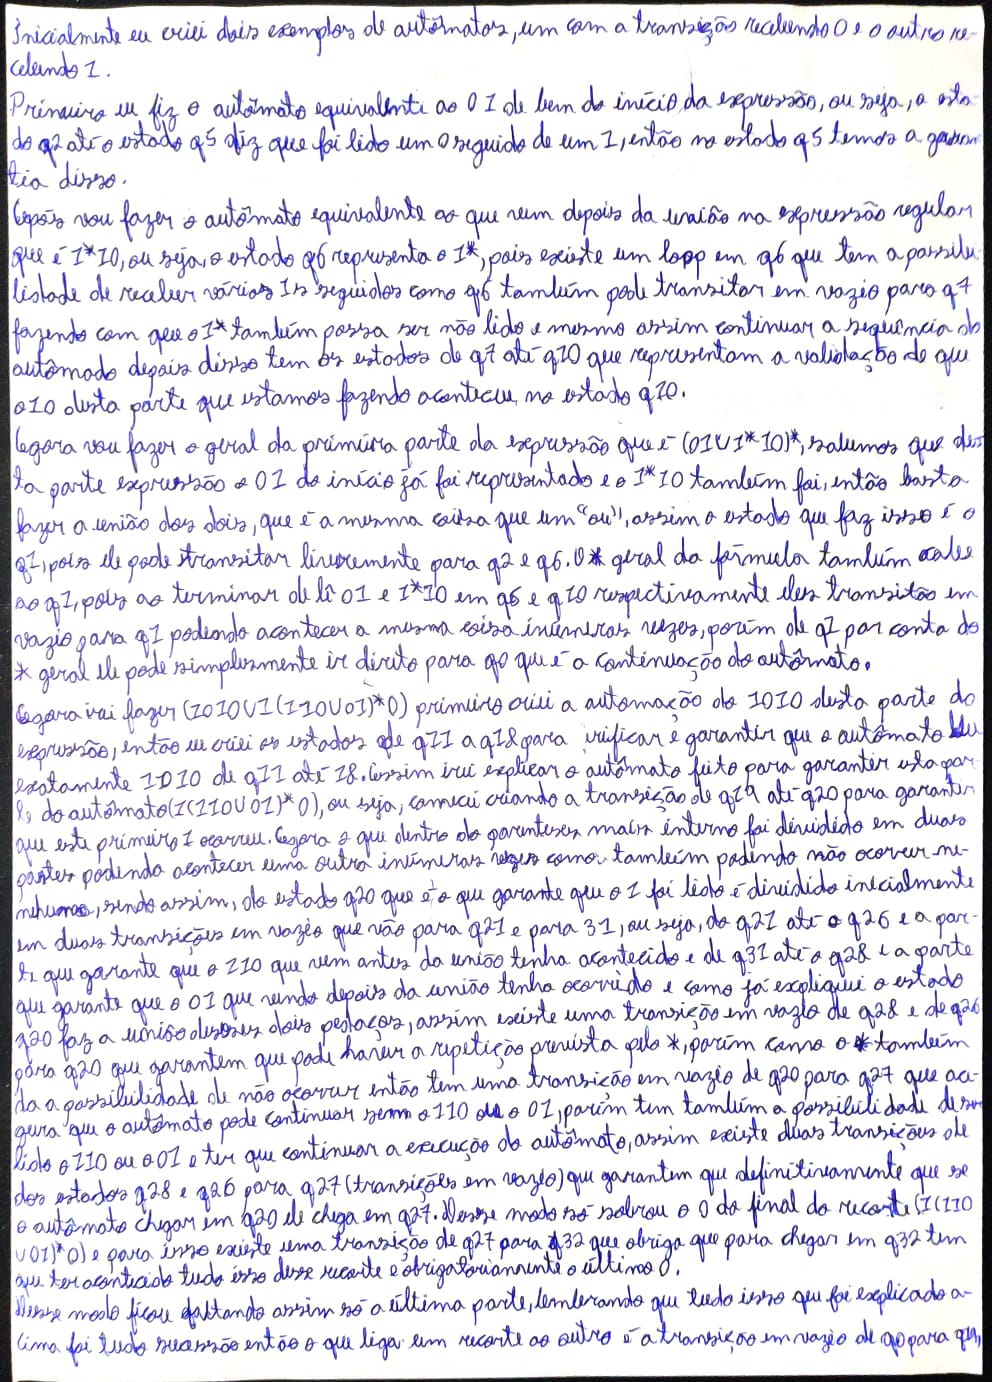 Inicialmente eu criei dois exemplos de autômatos, um com a transição recebendo 0 e o outro re-
cebendo 1.
Primeiro eu fiz o autômato equivalente ao 01 de bem do início da expressão, ou seja, o esta-
do q2 até o estado q5 diz que foi lido um 0 seguido de um 1, então no estado q5 temos a garan
tia disso.
Depois vou fazer o autômato equivalente ao que vem depois da união na expressão regular
que é 1*10, ou seja, o estado q6 representa o 1*, pois existe um lopp em q6 que tem a possibi-
lidade de receber vários 1s seguidos como q6 também pode transitar em vazio para q7
fazendo com que o 1* também possa ser não lido e mesmo assim continuar a sequência do
autômado depois disso tem os estados de q7 até q10 que representam a validação de que
o 10 desta parte que estamos fazendo aconteceu no estado q10.
Agora vou fazer o geral da primeira parte da expressão que é (01U1*10)*, sabemos que des-
ta parte expressão o 01 do início já foi representado e o 1*10 também foi, então basta
fazer a união dos dois, que é a mesma coisa que um "ou", assim o estado que faz isso é o
q1, pois ele pode transitar livremente para q2 e q6. O * geral da fórmula também cabe
ao q1, pois ao terminar de lê 01 e 1*10 em q5 e q10 respectivamente eles transitão em
vazio para q1 podendo acontecer a mesma coisa inúmeras vezes, porém de q1 por conta do
* geral ele pode simplesmente ir direto para q0 que é a continuação do autômato.
Agora irei fazer (1010U1(110U01)*0) primeiro criei a automação do 1010 desta parte da
expressão, então eu criei os estados de q11 a q18 para verificar e garantir que o autômato leu
exatamente 1010 de q11 até 18. Assim irei explicar o autômato feito para garantir esta par-
te do autômato (1(110U01)*0), ou seja, comecei criando a transição de q19 até q20 para garantir
que este primeiro 1 ocorreu. Agora o que dentro do parenteses mais interno foi dividido em duas
partes podendo acontecer uma outra inúmeras vezes como também podendo não ocorrer ne-
nehumas, sendo assim, do estado q20 que é o que garante que o 1 foi lido é dividido inicialmente
em duas transições em vazio que vão para q21 e para 31, ou seja, do q21 até o q26 e a par-
te que garante que o 110 que vem antes da união tenha acontecido e de q31 até o q28 e a parte
que garante que o 01 que vendo depois da união tenha ocorrido e como já expliquei o estado
q20 faz a união desses dois pedaços, assim existe uma transição em vazio de q28 e de q26
para q20 que garantem que pode haver a repetição prevista pelo *, porém como o * também
da a possibilidade de não ocorrer então tem uma transição em vazio de q20 para q27 que ase-
gura que o autômato pode continuar sem o 110 ou o 01, porém tem também a possibilidade de ser
lido o 110 ou o 01 e ter que continuar a execução do autômato, assim existe duas transições de
dos estados q28 e q26 para q27 (transições em vazio) que garantem que definitivamente que se
o autômato chegar em q20 ele chega em q27. Desse modo só sobrou o 0 do final do recorte (1(110
U01)*0) e para isso existe uma transição de q27 para q32 que obriga que para chegar em q32 tem
que ter acontecido tudo isso desse recorte e obrigatoriamente o último 0.
Desse modo ficou faltando assim só a última parte, lembrando que tudo isso que foi explicado a-
cima foi tudo sucessão então o que liga um recorte ao outro é a transição em vazio de q0 para